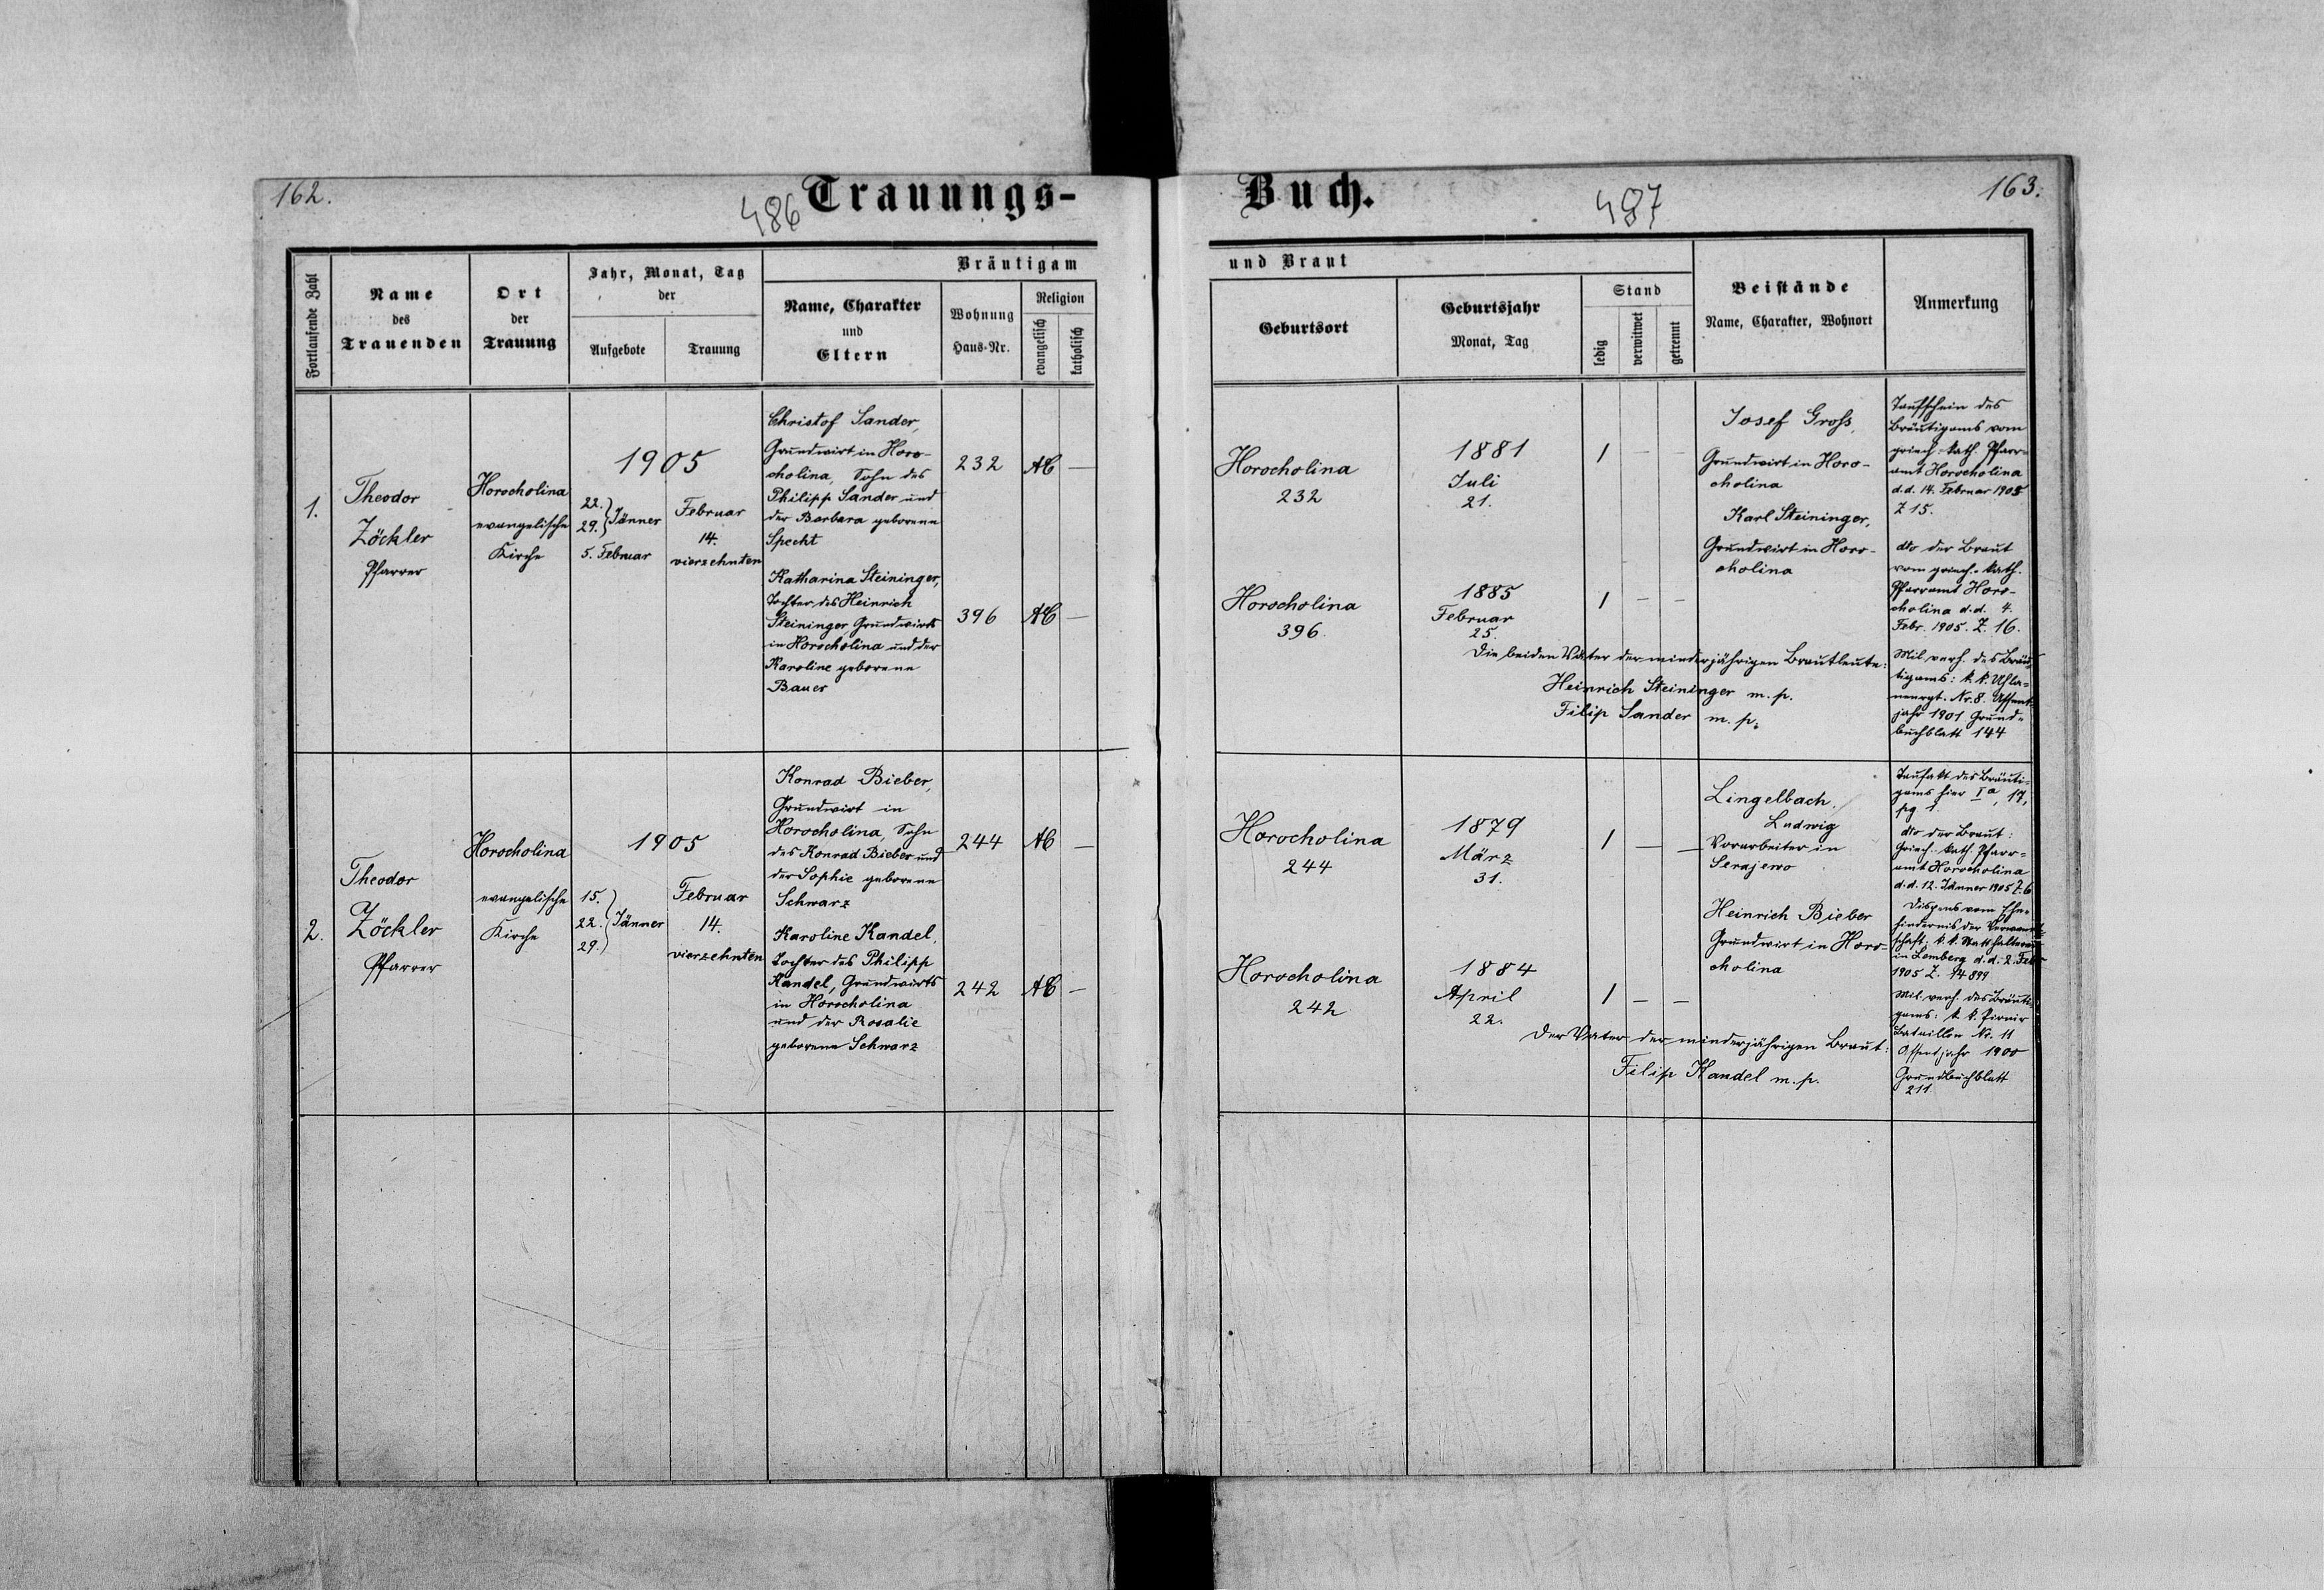 162.
486
Trauungs-
Fortlaufende Zahl
Name
des
Trauenden
Ort
der
Trauung
Jahr, Monat, Tag
der
Aufgebote
Trauung
Bräutigam
Name, Charakter
und
Eltern
Wohnung
Haus-Nr.
Religion
evangelisch
katholisch
1.
Theodor
Zöckler
Pfarrer
Horocholina
evangelische
Kirche
1905
22.
29. } Jänner
5. Februar
Februar
14.
vierzehnten
Christof Sander,
Grundwirt in Horo-
cholina, Sohn des
Philipp Sander und
der Barbara geborene
Specht
232
AC
—
Katharina Steininger,
Tochter des Heinrich
Steininger Grundwirts
in Horocholina und der
Karoline geborene
Bauer
396
AC
—
2.
Theodor
Zöckler
Pfarrer
Horocholina
evangelische
Kirche
1905
15.
22. } Jänner
29.
Februar
14.
vierzehnten
Konrad Bieber,
Grundwirt in
Horocholina, Sohn
des Konrad Bieber und
der Sophie geborene
Schwarz
244
AC
—
Karoline Kandel,
Tochter des Philipp
Kandel, Grundwirts
in Horocholina
und der Rosalie
geborene Schwarz
242
AC
—
Buch.
487
163.
und Braut
Geburtsort
Geburtsjahr
Monat, Tag
Stand
ledig
verwitwet
getrennt
Beistände
Name, Charakter, Wohnort
Anmerkung
Horocholina
232
1881
Juli
21.
1 — —
Josef Gross,
Grundwirt in Horo-
cholina
Karl Steininger,
Grundwirt in Horo-
cholina
Taufschein des
Bräutigams vom
griech. kath. Pfarr-
amt Horocholina
d.d. 14. Februar 1905
Z 15.
dto der Braut
vom griech.-kath.
Pfarramt Horo-
cholina d.d. 4.
Febr. 1905. Z. 16.
Mil. verh. des Bräu-
tigams: k. k. Uhla-
nenrgt. Nr. 8. Assent-
jahr 1901 Grund-
buchblatt 144
Horocholina
396
1885
Februar
25.
1 — —
Die beiden Väter der minderjährigen Brautleute:
Heinrich Steininger m. p.
Filip Sander m. p.
Horocholina
244
1879
März
31.
1 — —
Lingelbach
Ludwig
Vorarbeiter in
Serajewo
Heinrich Bieber
Grundwirt in Horo-
cholina
Taufakt des Bräuti-
gams hier Ia, 17,
pg 1.
dto der Braut:
Griech. kath. Pfarr-
amt Horocholina
d.d. 12. Jänner 1905 Z. 6
Dispens vom Ehe-
hindernis der Verwandt-
schaft: k. k. Statthalterei
in Lemberg d.d. 2. Febr
1905 Z. 14899
Mil. verh. des Bräuti-
gams: k. k. Pionir
Bataillon Nr. 11
Assentjahr 1900
Grundbuchblatt
211
Horocholina
242
1884
April
22.
1 — —
Der Vater der minderjährigen Braut:
Filip Kandel m. p.